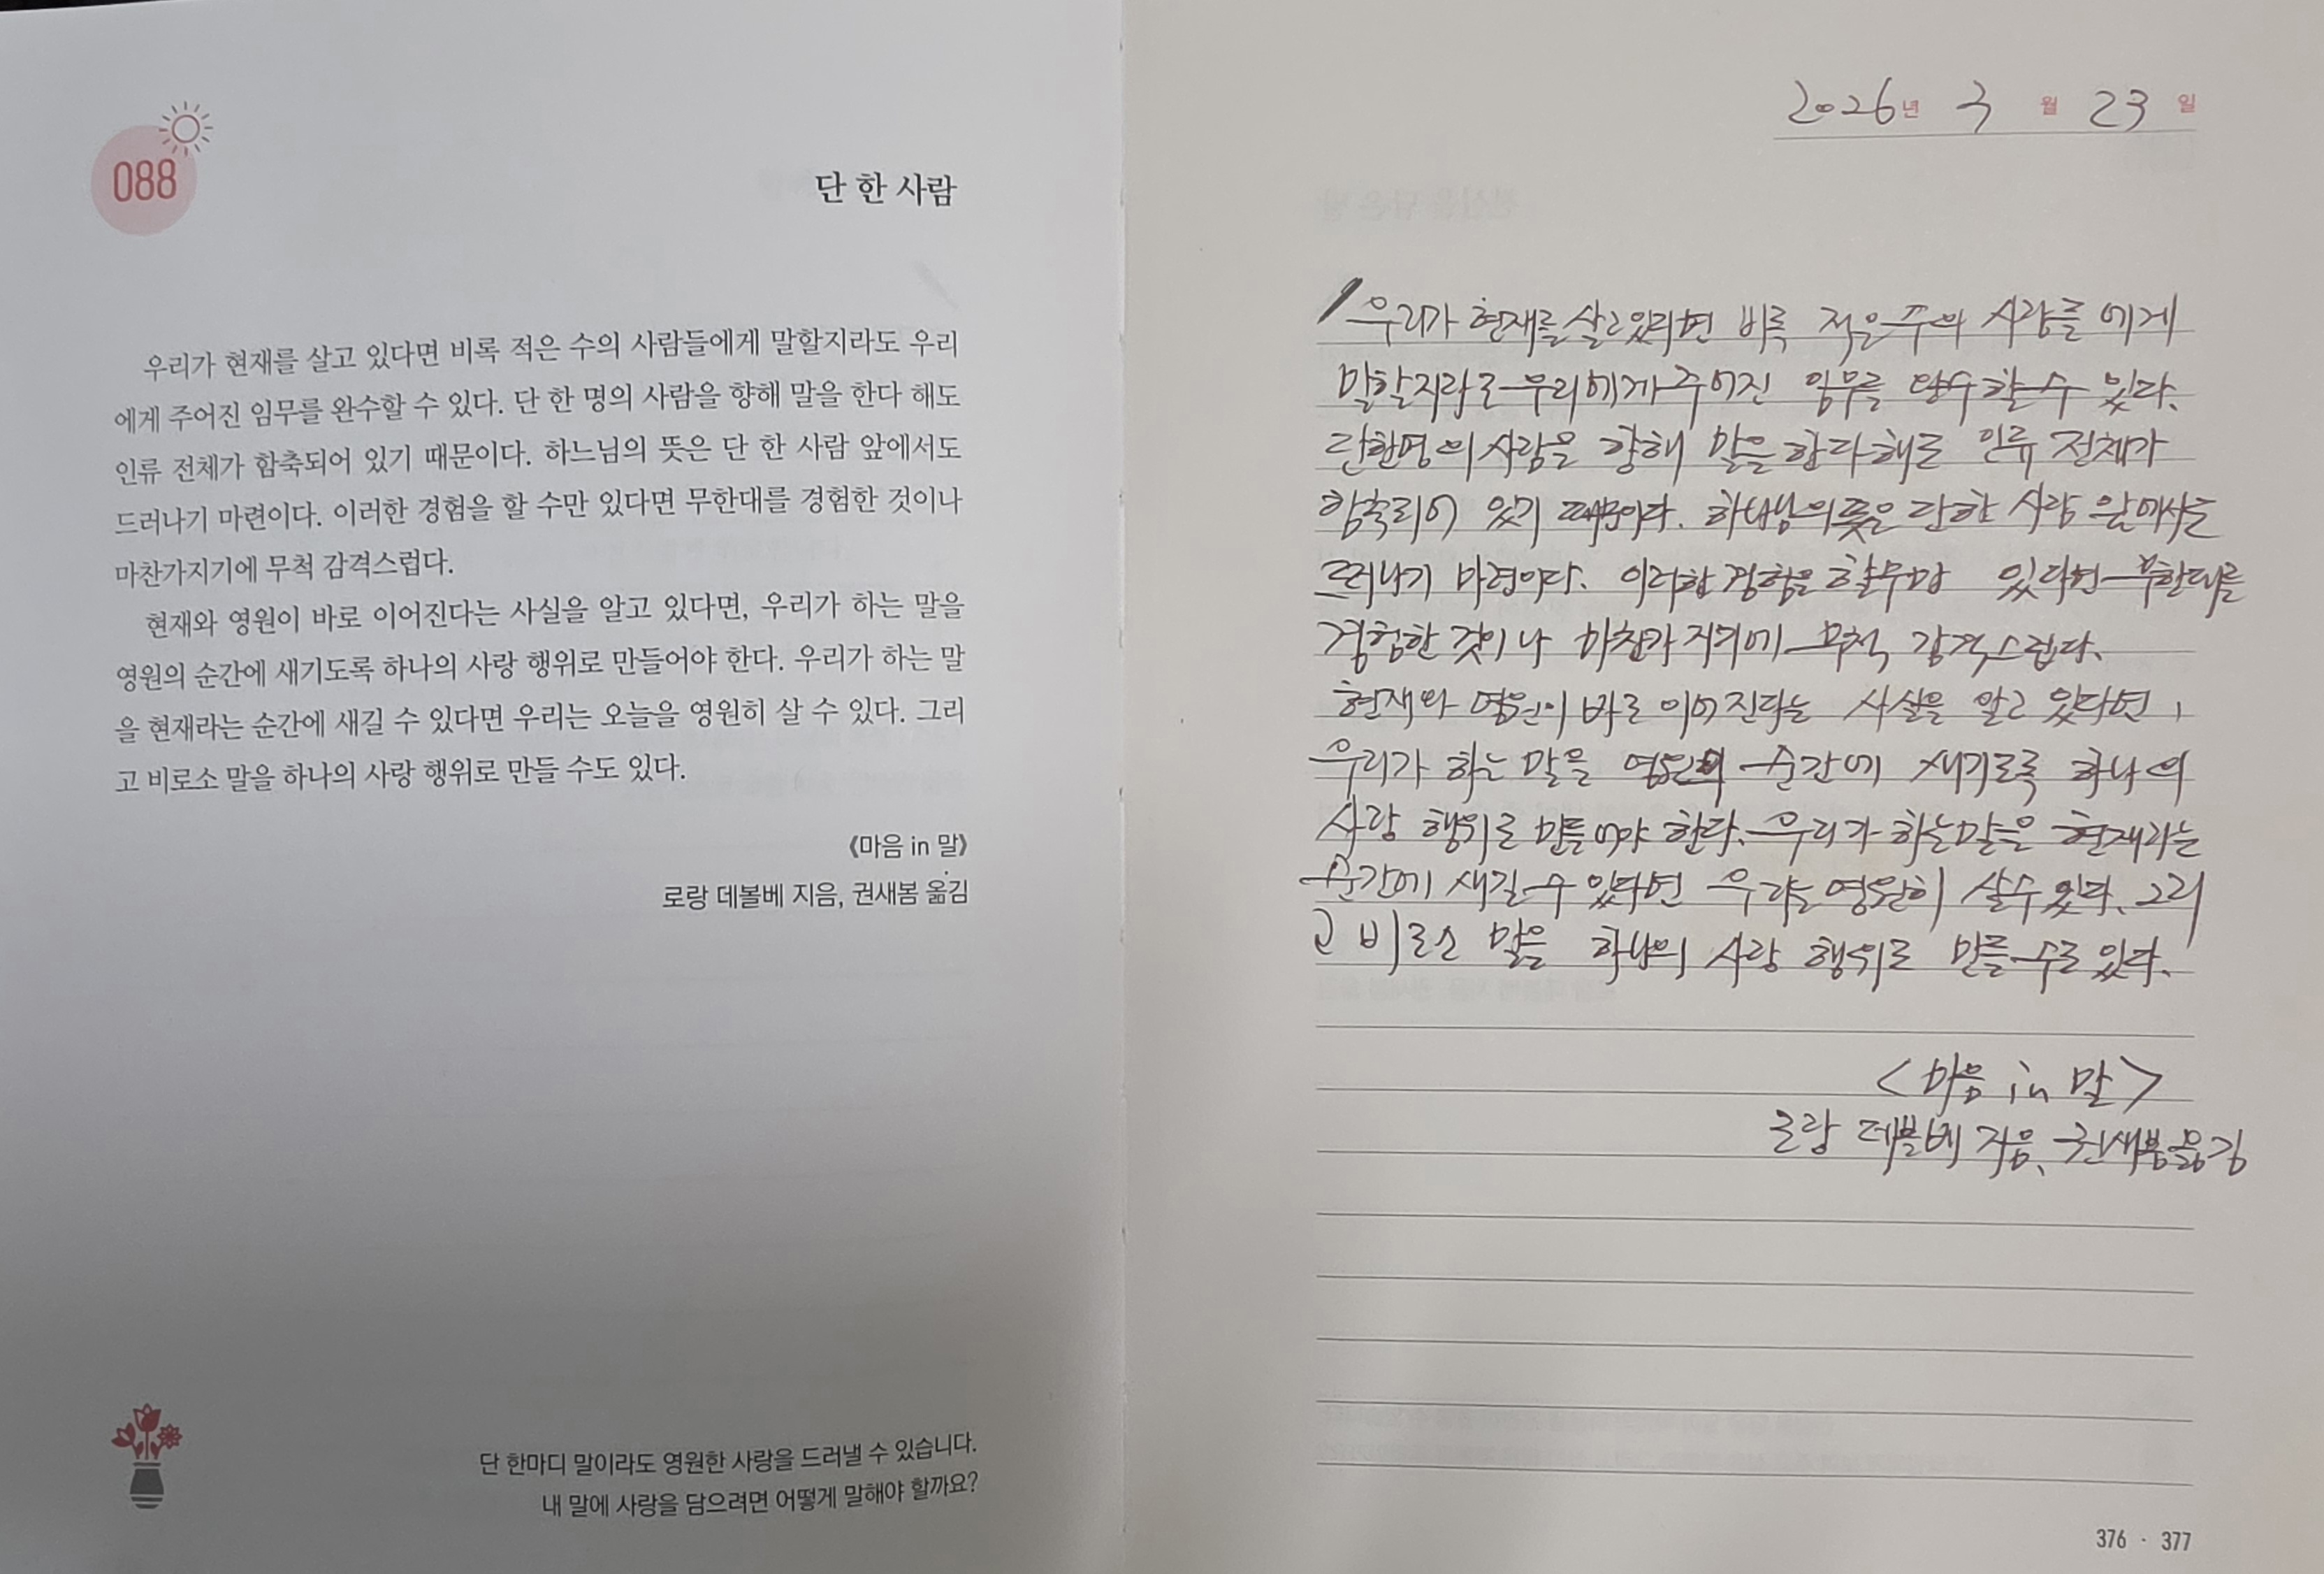 088
단 한 사람
우리가 현재를 살고 있다면 비록 적은 수의 사람들에게 말할지라도 우리
에게 주어진 임무를 완수할 수 있다. 단 한 명의 사람을 향해 말을 한다 해도
인류 전체가 함축되어 있기 때문이다. 하느님의 뜻은 단 한 사람 앞에서도
드러나기 마련이다. 이러한 경험을 할 수만 있다면 무한대를 경험한 것이나
마찬가지기에 무척 감격스럽다.
현재와 영원이 바로 이어진다는 사실을 알고 있다면, 우리가 하는 말을
영원의 순간에 새기도록 하나의 사랑 행위로 만들어야 한다. 우리가 하는 말
을 현재라는 순간에 새길 수 있다면 우리는 오늘을 영원히 살 수 있다. 그리
고 비로소 말을 하나의 사랑 행위로 만들 수도 있다.
《마음 in 말》
로랑 데볼베 지음, 권새봄 옮김
단 한마디 말이라도 영원한 사랑을 드러낼 수 있습니다.
내 말에 사랑을 담으려면 어떻게 말해야 할까요?
2026년 3월 23일
우리가 현재를 살고 있다면 비록 적은 수의 사람들에게
말할지라도 우리에게 주어진 임무를 완수할 수 있다.
단 한명의 사람을 향해 말을 한다 해도 인류 전체가
함축되어 있기 때문이다. 하느님의 뜻은 단 한 사람 앞에서도
드러나기 마련이다. 이러한 경험을 할 수만 있다면 무한대를
경험한 것이나 마찬가지기에 무척 감격스럽다.
현재와 영원이 바로 이어진다는 사실을 알고 있다면,
우리가 하는 말을 영원의 순간에 새기도록 하나의
사랑 행위로 만들어야 한다. 우리가 하는 말을 현재라는
순간에 새길 수 있다면 우리는 영원히 살 수 있다. 그리
고 비로소 말을 하나의 사랑 행위로 만들 수도 있다.
<마음 in 말>
로랑 데볼베 지음, 권새봄 옮김
376 · 377